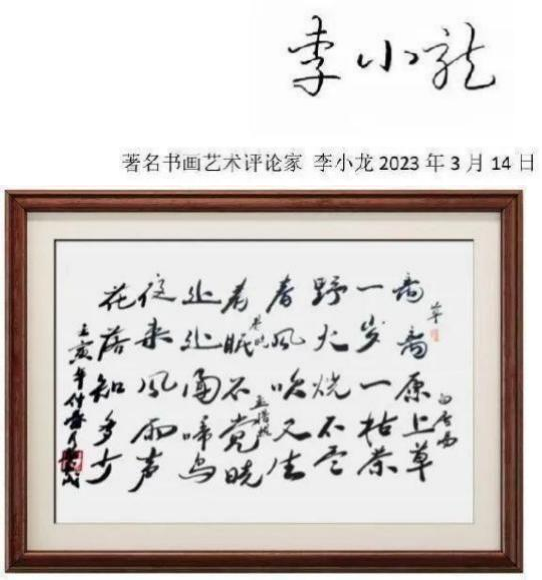 李小龙
著名书画艺术评论家 李小龙 2023 年 3 月 14 日
草
白居易
离离原上草
一岁一枯荣
野火烧不尽
春风吹又生
春晓
孟浩然
春眠不觉晓
处处闻啼鸟
夜来风雨声
花落知多少
壬寅年付